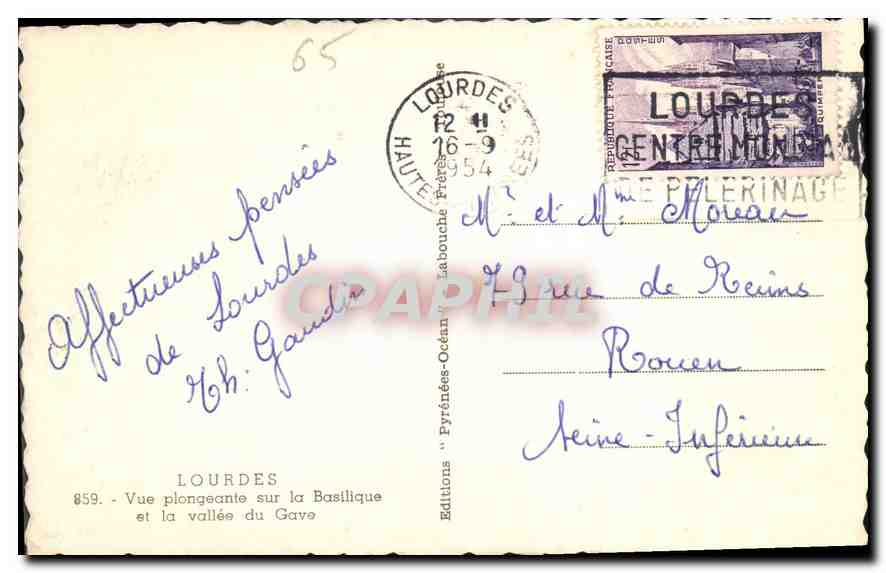 65
LOURDES
12 H
16-9
1954
HAUTES
RÉPUBLIQUE FRANÇAISE
POSTES
12F
QUIMPER
LOURDES
CENTRE MONDIAL
DE PELERINAGE
Affectueuses pensées
de Lourdes
Th: Gaudin
Mr et Mme Moreau
78 rue de Reims
Rouen
Seine-Inférieure
Editions "Pyrénées-Océan" Labouche Frères Toulouse
CPAPHIL
LOURDES
859. - Vue plongeante sur la Basilique
et la vallée du Gave